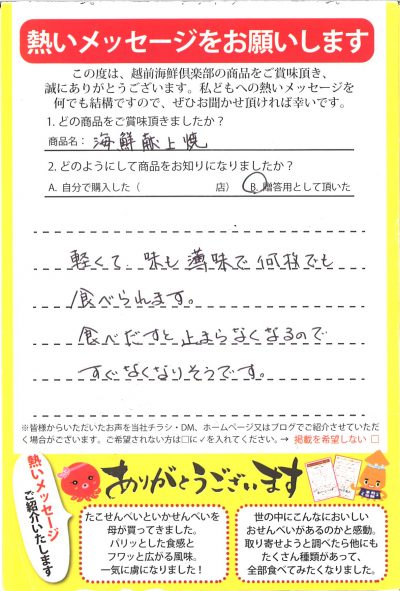 熱いメッセージをお願いします
この度は、越前海鮮倶楽部の商品をご賞味頂き、
誠にありがとうございます。私どもへの熱いメッセージを
何でも結構ですので、ぜひお聞かせ頂ければ幸いです。
1. どの商品をご賞味頂きましたか？
商品名： 海鮮献上焼
2. どのようにして商品をお知りになりましたか？
A. 自分で購入した（ 店） B. 贈答用として頂いた
軽くて、味も薄味で何枚でも
食べられます。
食べだすと止まらなくなるので
すぐなくなりそうです。
※皆様からいただいたお声を当社チラシ・DM、ホームページ又はブログでご紹介させていただ
く場合がございます。ご希望されない方は□に✓を入れてください。→ 掲載を希望しない □
熱いメッセージ
ご紹介いたします
ありがとうございます
たこせんべいといかせんべいを
母が買ってきました。
パリッとした食感と
フワッと広がる風味。
一気に虜になりました！
世の中にこんなにおいしい
おせんべいがあるのかと感動。
取り寄せようと調べたら他にも
たくさん種類があって、
全部食べてみたくなりました。